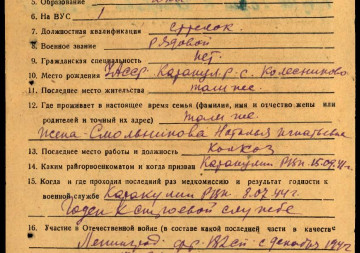 5. Образование
6. На ВУС 1
7. Должностная квалификация стрелок
8. Военное звание рядовой
9. Гражданская специальность нет
10. Место рождения УАССР Каракул. р. с. Колесниково
11. Последнее место жительства там же
12. Где проживает в настоящее время семья (фамилия, имя и отчество жены или
родителей и точный их адрес) там же
жена Смольникова Наталья Игнатьевна
13. Последнее место работы и должность Колхоз
14. Каким райгорвоенкоматом и когда призван Каракулин РВК 15.09.41 г.
15. Когда и где проходил последний раз медкомиссию и результат годности к
военной службе Каракулин РВК 8.07.44 г.
Годен к строевой службе
16. Участие в Отечественной войне (в составе последней части в качестве
Ленинград. фр. 182 сп с декабря 194